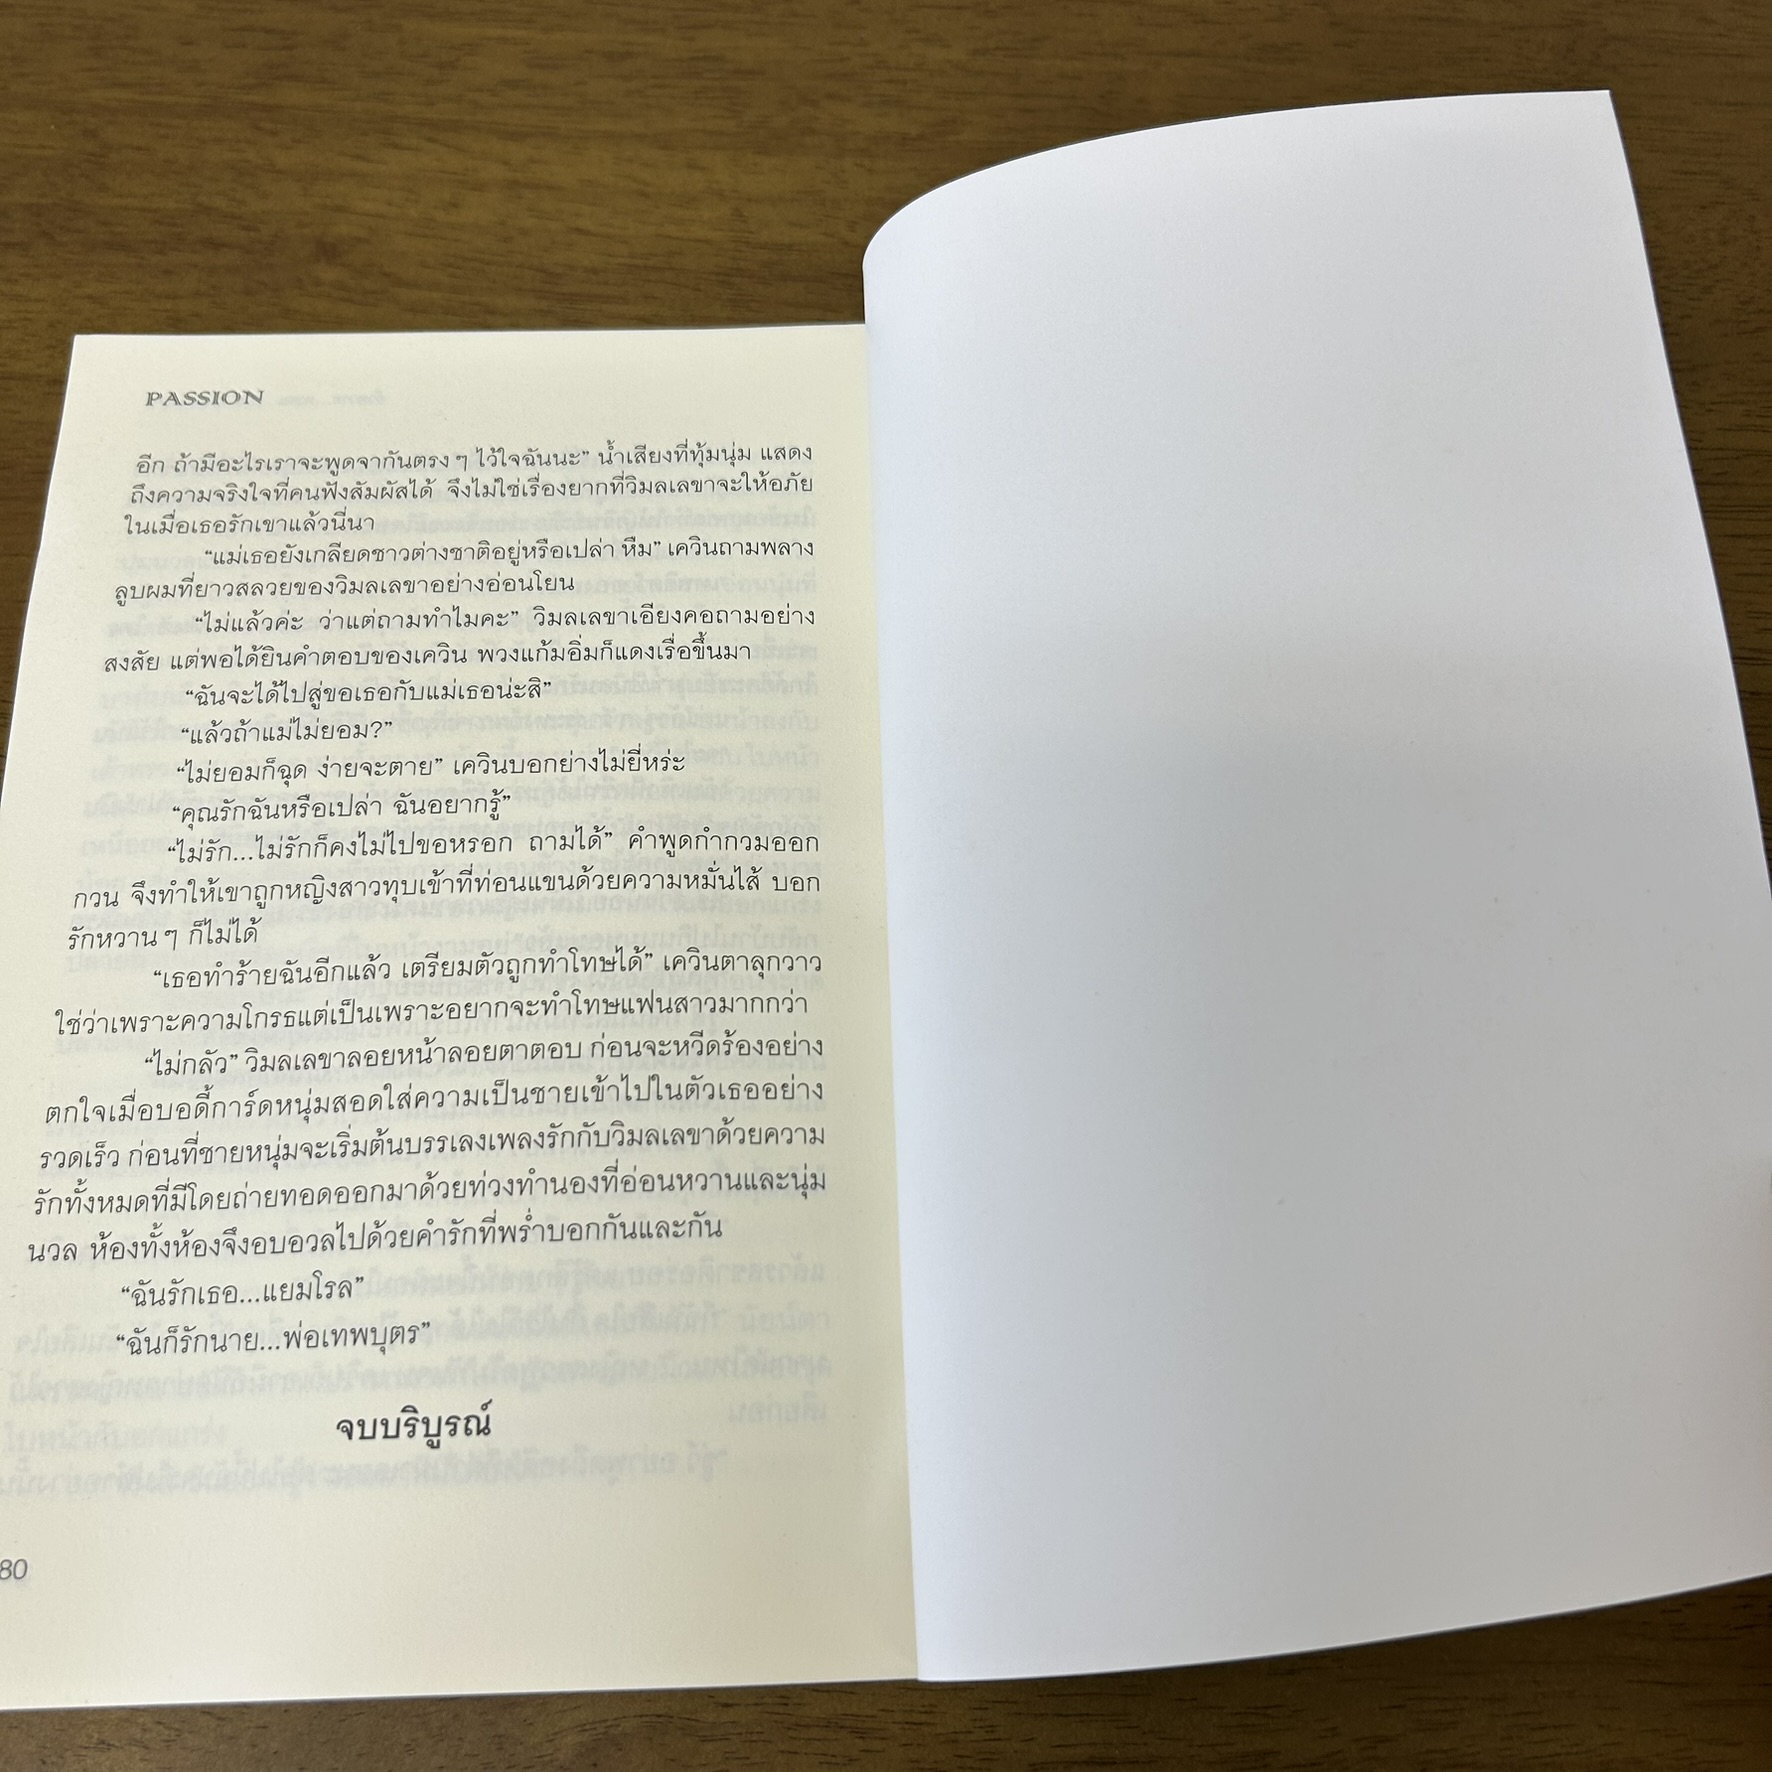 PASSION
อีก ถ้ามีอะไรเราจะพูดจากันตรง ๆ ไว้ใจฉันนะ” น้ำเสียงที่ทุ้มนุ่ม แสดง
ถึงความจริงใจที่คนฟังสัมผัสได้ จึงไม่ใช่เรื่องยากที่วิมลเลขาจะให้อภัย
ในเมื่อเธอรักเขาแล้วนี่นา
“แม่เธอยังเกลียดชาวต่างชาติอยู่หรือเปล่า หืม” เควินถามพลาง
ลูบผมที่ยาวสลวยของวิมลเลขาอย่างอ่อนโยน
“ไม่แล้วค่ะ ว่าแต่ถามทำไมคะ” วิมลเลขาเอียงคอถามอย่าง
สงสัย แต่พอได้ยินคำตอบของเควิน พวงแก้มอิ่มก็แดงเรื่อขึ้นมา
“ฉันจะได้ไปสู่ขอเธอกับแม่เธอน่ะสิ”
“แล้วถ้าแม่ไม่ยอม?”
“ไม่ยอมก็ฉุด ง่ายจะตาย” เควินบอกย่างไม่ยี่หร่ะ
“คุณรักฉันหรือเปล่า ฉันอยากรู้”
“ไม่รัก...ไม่รักก็คงไม่ไปขอหรอก ถามได้” คำพูดกำกวมออก
กวน จึงทำให้เขาถูกหญิงสาวทุบเข้าที่ท่อนแขนด้วยความหมั่นไส้ บอก
รักหวาน ๆ ก็ไม่ได้
“เธอทำร้ายฉันอีกแล้ว เตรียมตัวถูกทำโทษได้” เควินตาลุกวาว
ใช่ว่าเพราะความโกรธแต่เป็นเพราะอยากจะทำโทษแฟนสาวมากกว่า
“ไม่กลัว” วิมลเลขาลอยหน้าลอยตาตอบ ก่อนจะหวีดร้องอย่าง
ตกใจเมื่อบอดี้การ์ดหนุ่มสอดใส่ความเป็นชายเข้าไปในตัวเธออย่าง
รวดเร็ว ก่อนที่ชายหนุ่มจะเริ่มต้นบรรเลงเพลงรักกับวิมลเลขาด้วยความ
รักทั้งหมดที่มีโดยถ่ายทอดออกมาด้วยท่วงทำนองที่อ่อนหวานและนุ่ม
นวล ห้องทั้งห้องจึงอบอวลไปด้วยคำรักที่พร่ำบอกกันและกัน
“ฉันรักเธอ...แยมโรล”
“ฉันก็รักนาย...พ่อเทพบุตร”
จบบริบูรณ์
80